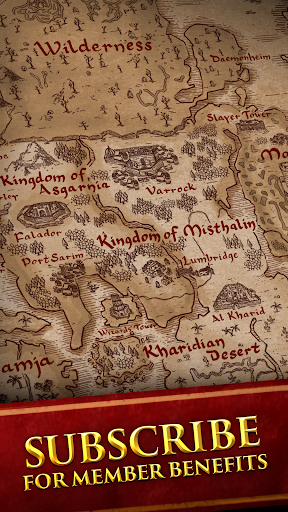 Wilderness
Daemonheim
Slayer Tower
Kingdom of
Asgarnia
Varrock
Falador
Kingdom of Misthalin
Port Sarim
Lumbridge
Wizards Tower
Al Kharid
Kharidian
Desert
SUBSCRIBE
FOR MEMBER BENEFITS